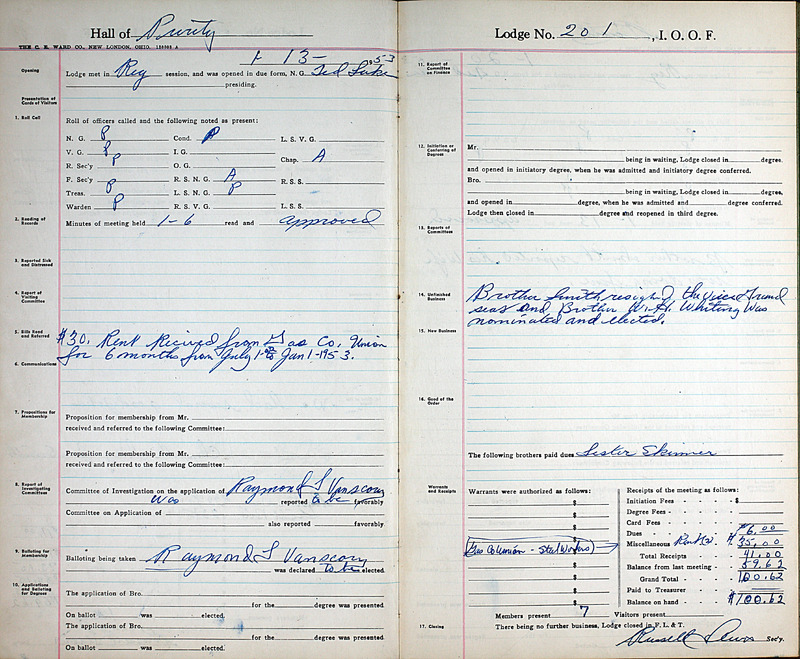 Hall of Purity
THE C. E. WARD CO., NEW LONDON, OHIO.
1-13-1953
Opening
Lodge met in Reg session, and was opened in due form, N. G. Ted
presiding.
Presentation of Cards of Visitors
1. Roll Call
Roll of officers called and the following noted as present:
N. G. P Cond. P L. S. V. G.
V. G. P I. G.
Chap. A
R. Sec'y P O. G.
F. Sec'y R. S. N. G. A R. S. S.
Treas. P L. S. N. G. P
Warden P R. S. V. G. L. S. S.
2. Reading of Records
Minutes of meeting held 1-6 read and approved
3. Reported Sick and Distressed
4. Report of Visiting Committee
5. Bills Read and Referred
$30. Rent Recived from Gas Co. Union
for 6 months from July 1st to Jan 1-1953.
6. Communications
7. Propositions for Membership
Proposition for membership from Mr.
received and referred to the following Committee:
Proposition for membership from Mr.
received and referred to the following Committee:
8. Report of Investigating Committee
Committee of Investigation on the application of Raymond L Vanscoy
was reported to be favorably
Committee on Application of
also reported favorably
9. Balloting for Membership
Balloting being taken Raymond L Vanscoy
was declared to be elected.
10. Applications and Balloting for Degrees
The application of Bro.
for the degree was presented
On ballot was elected.
The application of Bro.
for the degree was presented
On ballot was elected.
Lodge No. 201, I. O. O. F.
11. Report of Committee on Finance
12. Initiation or Conferring of Degrees
Mr.
being in waiting, Lodge closed in degree,
and opened in initiatory degree, when he was admitted and initiatory degree conferred.
Bro.
being in waiting, Lodge closed in degree.
and opened in degree, when he was admitted and degree conferred.
Lodge then closed in degree and reopened in third degree.
13. Reports of Committees
14. Unfinished Business
Brother Smith resigned the Vice Grand
seat and Brother W. H. Whiting Was
nominated and elected.
15. New Business
16. Good of the Order
The following brothers paid dues Lester Skinner
Warrants and Receipts
Warrants were authorized as follows:
$
$
$
$
Gas Co Union - Steel Workers)
$
$
$
$
Receipts of the meeting as follows:
Initiation Fees $
Degree Fees
Card Fees
Dues $6.00
Miscellaneous Rent $35.00
Total Receipts 41.00
Balance from last meeting 59.62
Grand Total 100.62
Paid to Treasurer
Balance on hand $100.62
Members present 7 Visitors present
17. Closing
There being no further business, Lodge closed in F. L. & T.
Russell Secy.